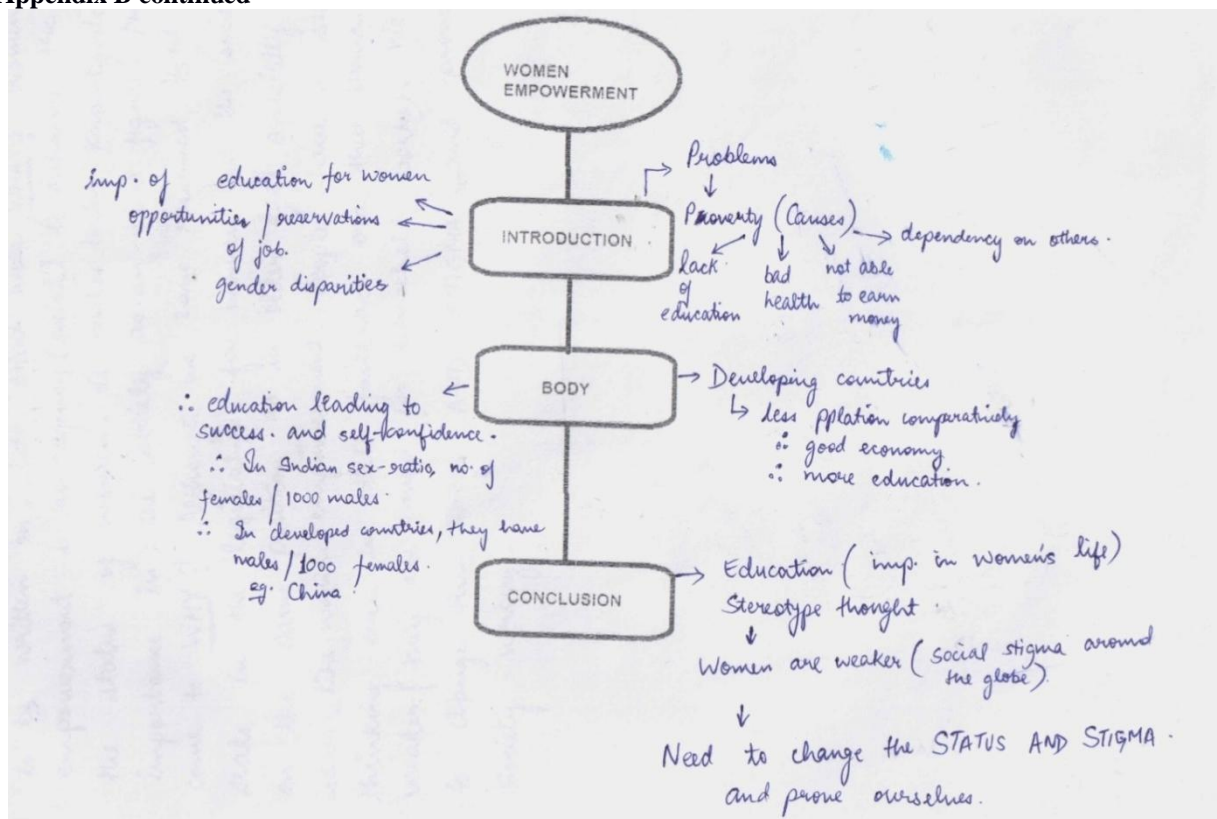 Appendix B continued
WOMEN
EMPOWERMENT
imp. of education for women
opportunities / reservations
of job.
gender disparities
INTRODUCTION
Problems
Poverty (Causes)
dependency on others.
Lack
of
education
bad
health
not able
to earn
money
BODY
∴ education leading to
success. and self-confidence.
∴ In Indian sex-ratio, no. of
females / 1000 males.
∴ In developed countries, they have
males / 1000 females.
eg. China
Developing countries
less pplation comparatively
∴ good economy
∴ more education.
CONCLUSION
Education ( imp. in women's life)
Stereotype thought
Women are weaker ( social stigma around
the globe).
Need to change the STATUS AND STIGMA.
and prove ourselves.